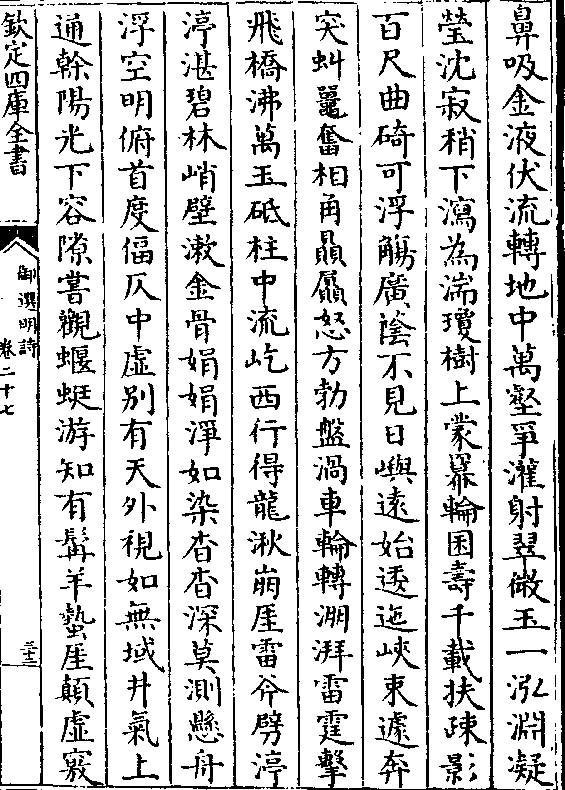 鼻吸金液伏流轉地中萬壑爭灌射翠微玉一泓淵凝
瑩沈寂稍下瀉為湍瓊樹上蒙羃輪囷壽千載扶疎影
百尺曲碕可浮觴廣蔭不見日嶼遠始透迤峽束遽奔
突虯鼉奮相角贔屭怒方勃盤渦車輪轉淜湃雷霆擊
飛橋沸萬玉砥柱中流屹西行得龍湫崩厓雷斧劈渟
渟湛碧林峭壁漱金骨娟娟淨如染杳杳深莫測懸舟
浮空明俯首度偪仄中虛別有天外視如無域井氣上
通斡陽光下容隙嘗觀蝘蜓游知有髯羊蟄厓顛虛竅
欽定四庫全書
御選明詩
卷二十七
三十三